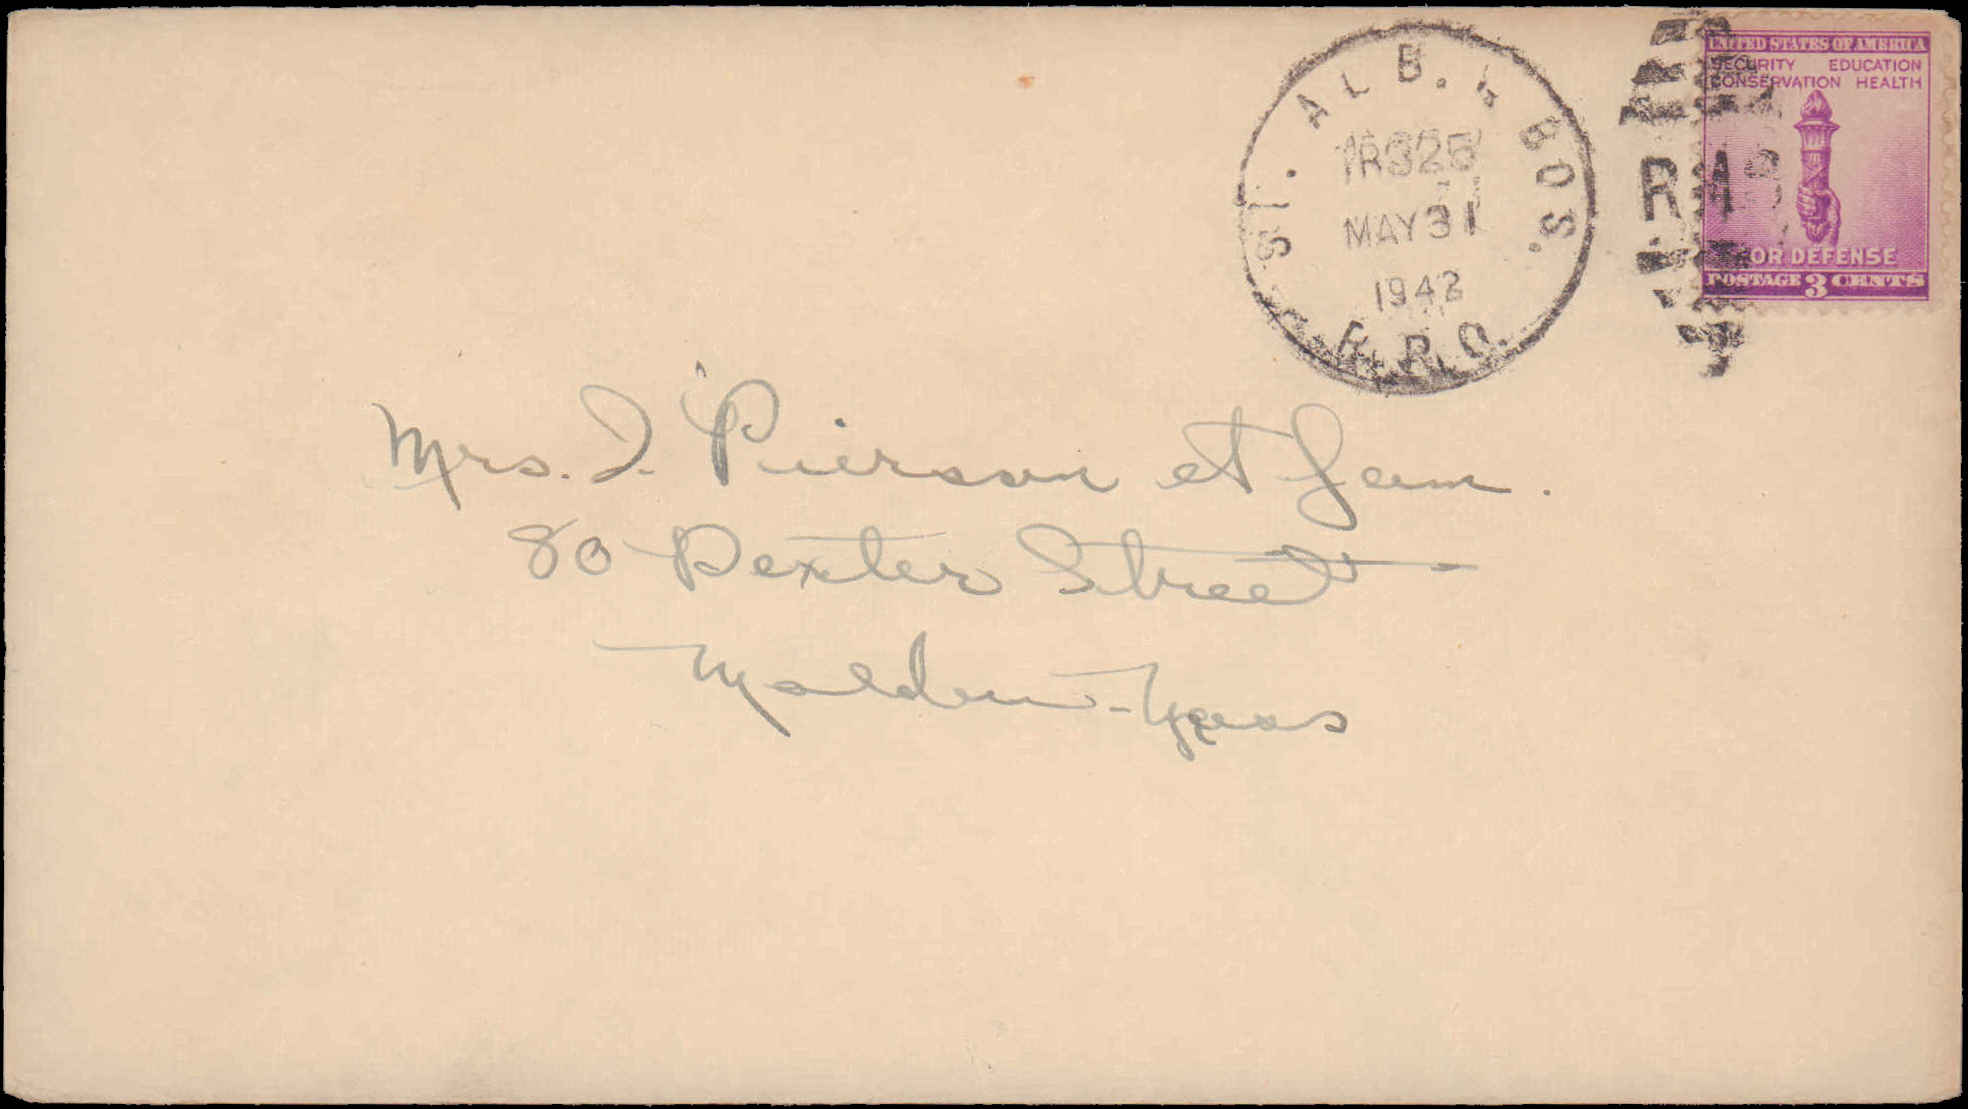 ST. ALB. & BOS.
TR 325
MAY 31
1942
R.P.O.
UNITED STATES OF AMERICA
SECURITY EDUCATION
CONSERVATION HEALTH
FOR DEFENSE
POSTAGE 3 CENTS
Mrs. J. Pierson et fam.
80 Dexter Street
Malden - Mass